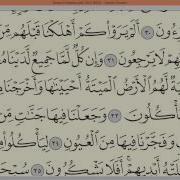 ءُونَ ٣٠ أَلَمْ يَرَوْا۟ كَمْ أَهْلَكْنَا قَبْلَهُم
هِمْ لَا يَرْجِعُونَ ٣١ وَإِن كُلٌّ لَّمَّا جَمِيعٌ لَّدَيْنَا
لَّهُمُ ٱلْأَرْضُ ٱلْمَيْتَةُ أَحْيَيْنَـٰهَا وَأَخْرَجْنَا
كُلُونَ ٣٣ وَجَعَلْنَا فِيهَا جَنَّـٰتٍ مِّن
وَفَجَّرْنَا فِيهَا مِنَ ٱلْعُيُونِ ٣٤ لِيَأْكُلُوا۟
أَيْدِيهِمْ ۖ أَفَلَا يَشْكُرُونَ ٣٥ سُبْحَـ